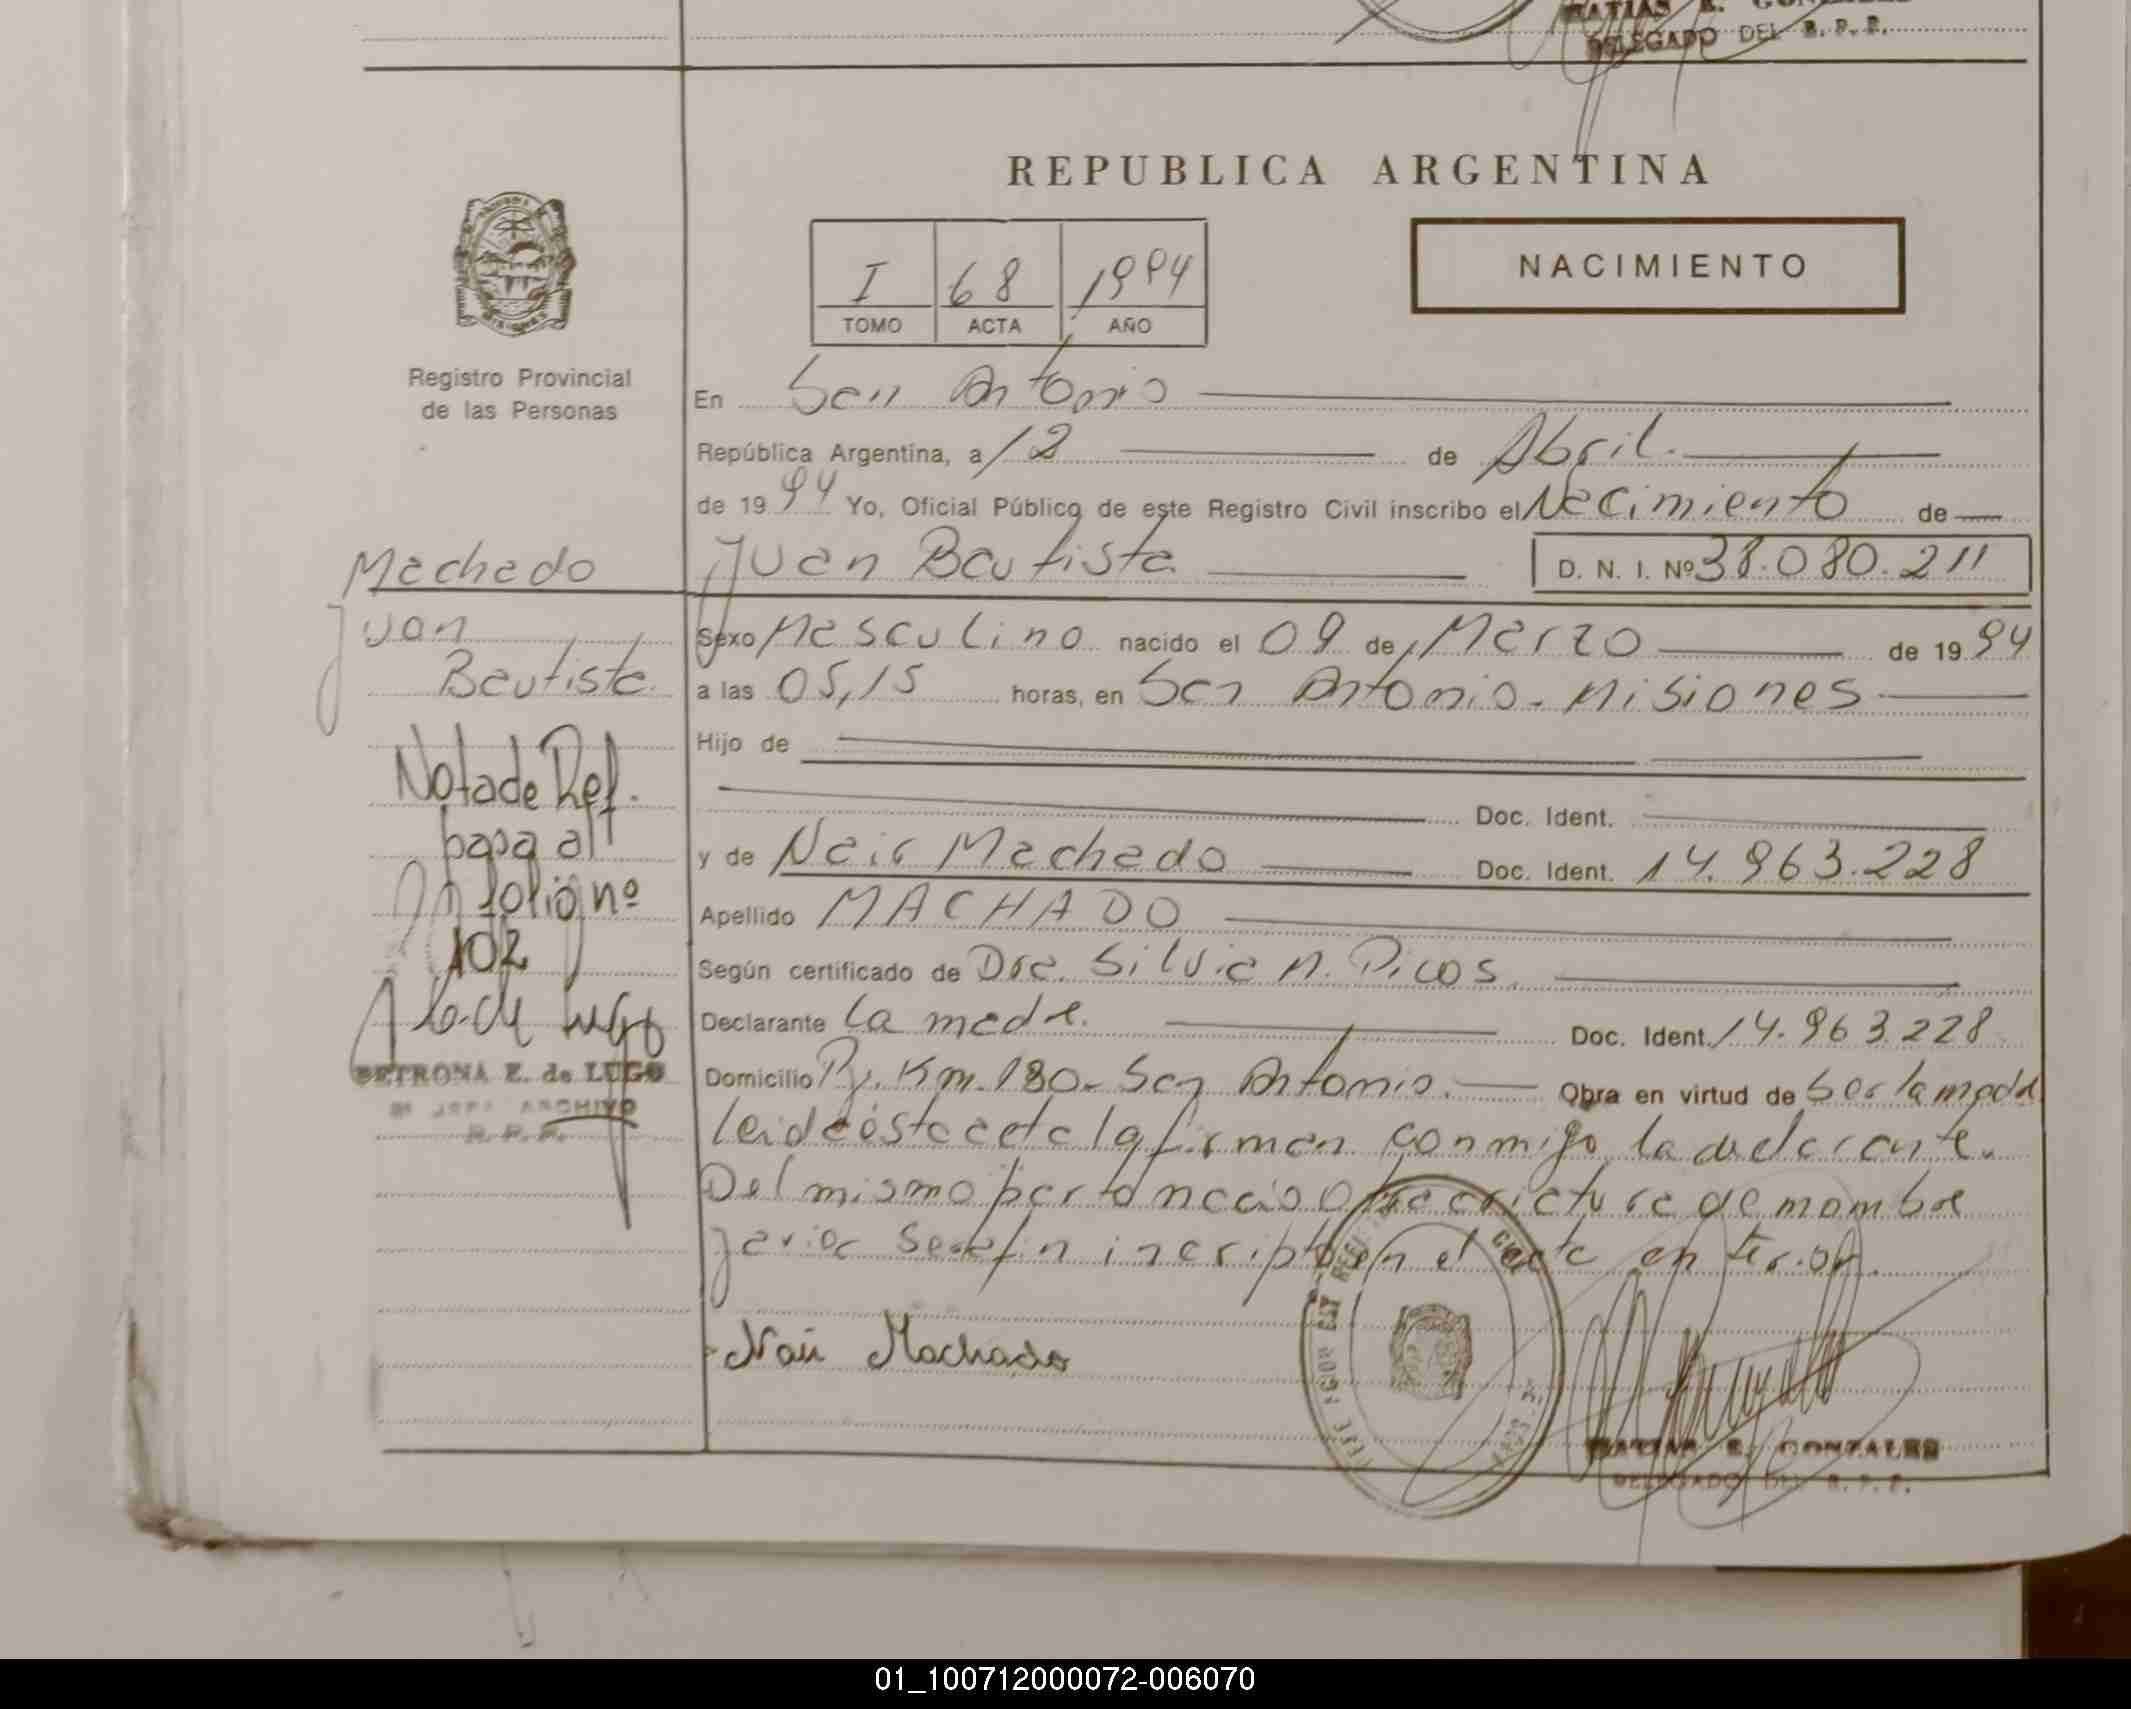 MATIAS E. GONZALES
DELEGADO DEL R. P. P.
REPUBLICA ARGENTINA
NACIMIENTO
I 68 1994
TOMO ACTA AÑO
Registro Provincial
de las Personas
En San Antonio
República Argentina, a 12 de Abril.
de 1994 Yo, Oficial Público de este Registro Civil inscribo el Nacimiento de
Juan Bautista D. N. I. Nº 38.080.211
Sexo Masculino nacido el 09 de Marzo de 1994
a las 05,15 horas, en San Antonio. Misiones
Hijo de
Doc. Ident.
y de Nair Machado Doc. Ident. 14.963.228
Apellido MACHADO
Según certificado de Dra. Silvia M. Picos.
Declarante La madre. Doc. Ident. 14.963.228
Domicilio Pj. Km. 180. San Antonio. Obra en virtud de Ser la madre
leida ésta acta la firman conmigo la declarante.
Del mismo parto nació otra criatura de nombre
Javier Serafin incripto en el acta anterior.
Nair Machado
MATIAS E. GONZALES
DELEGADO DEL R. P. P.
Machado
Juan
Bautista
Nota de Ref.
pasa al
folio nº
102
PETRONA E. de LUGO
JEFA ARCHIVO
R. P. P.
01_100712000072-006070